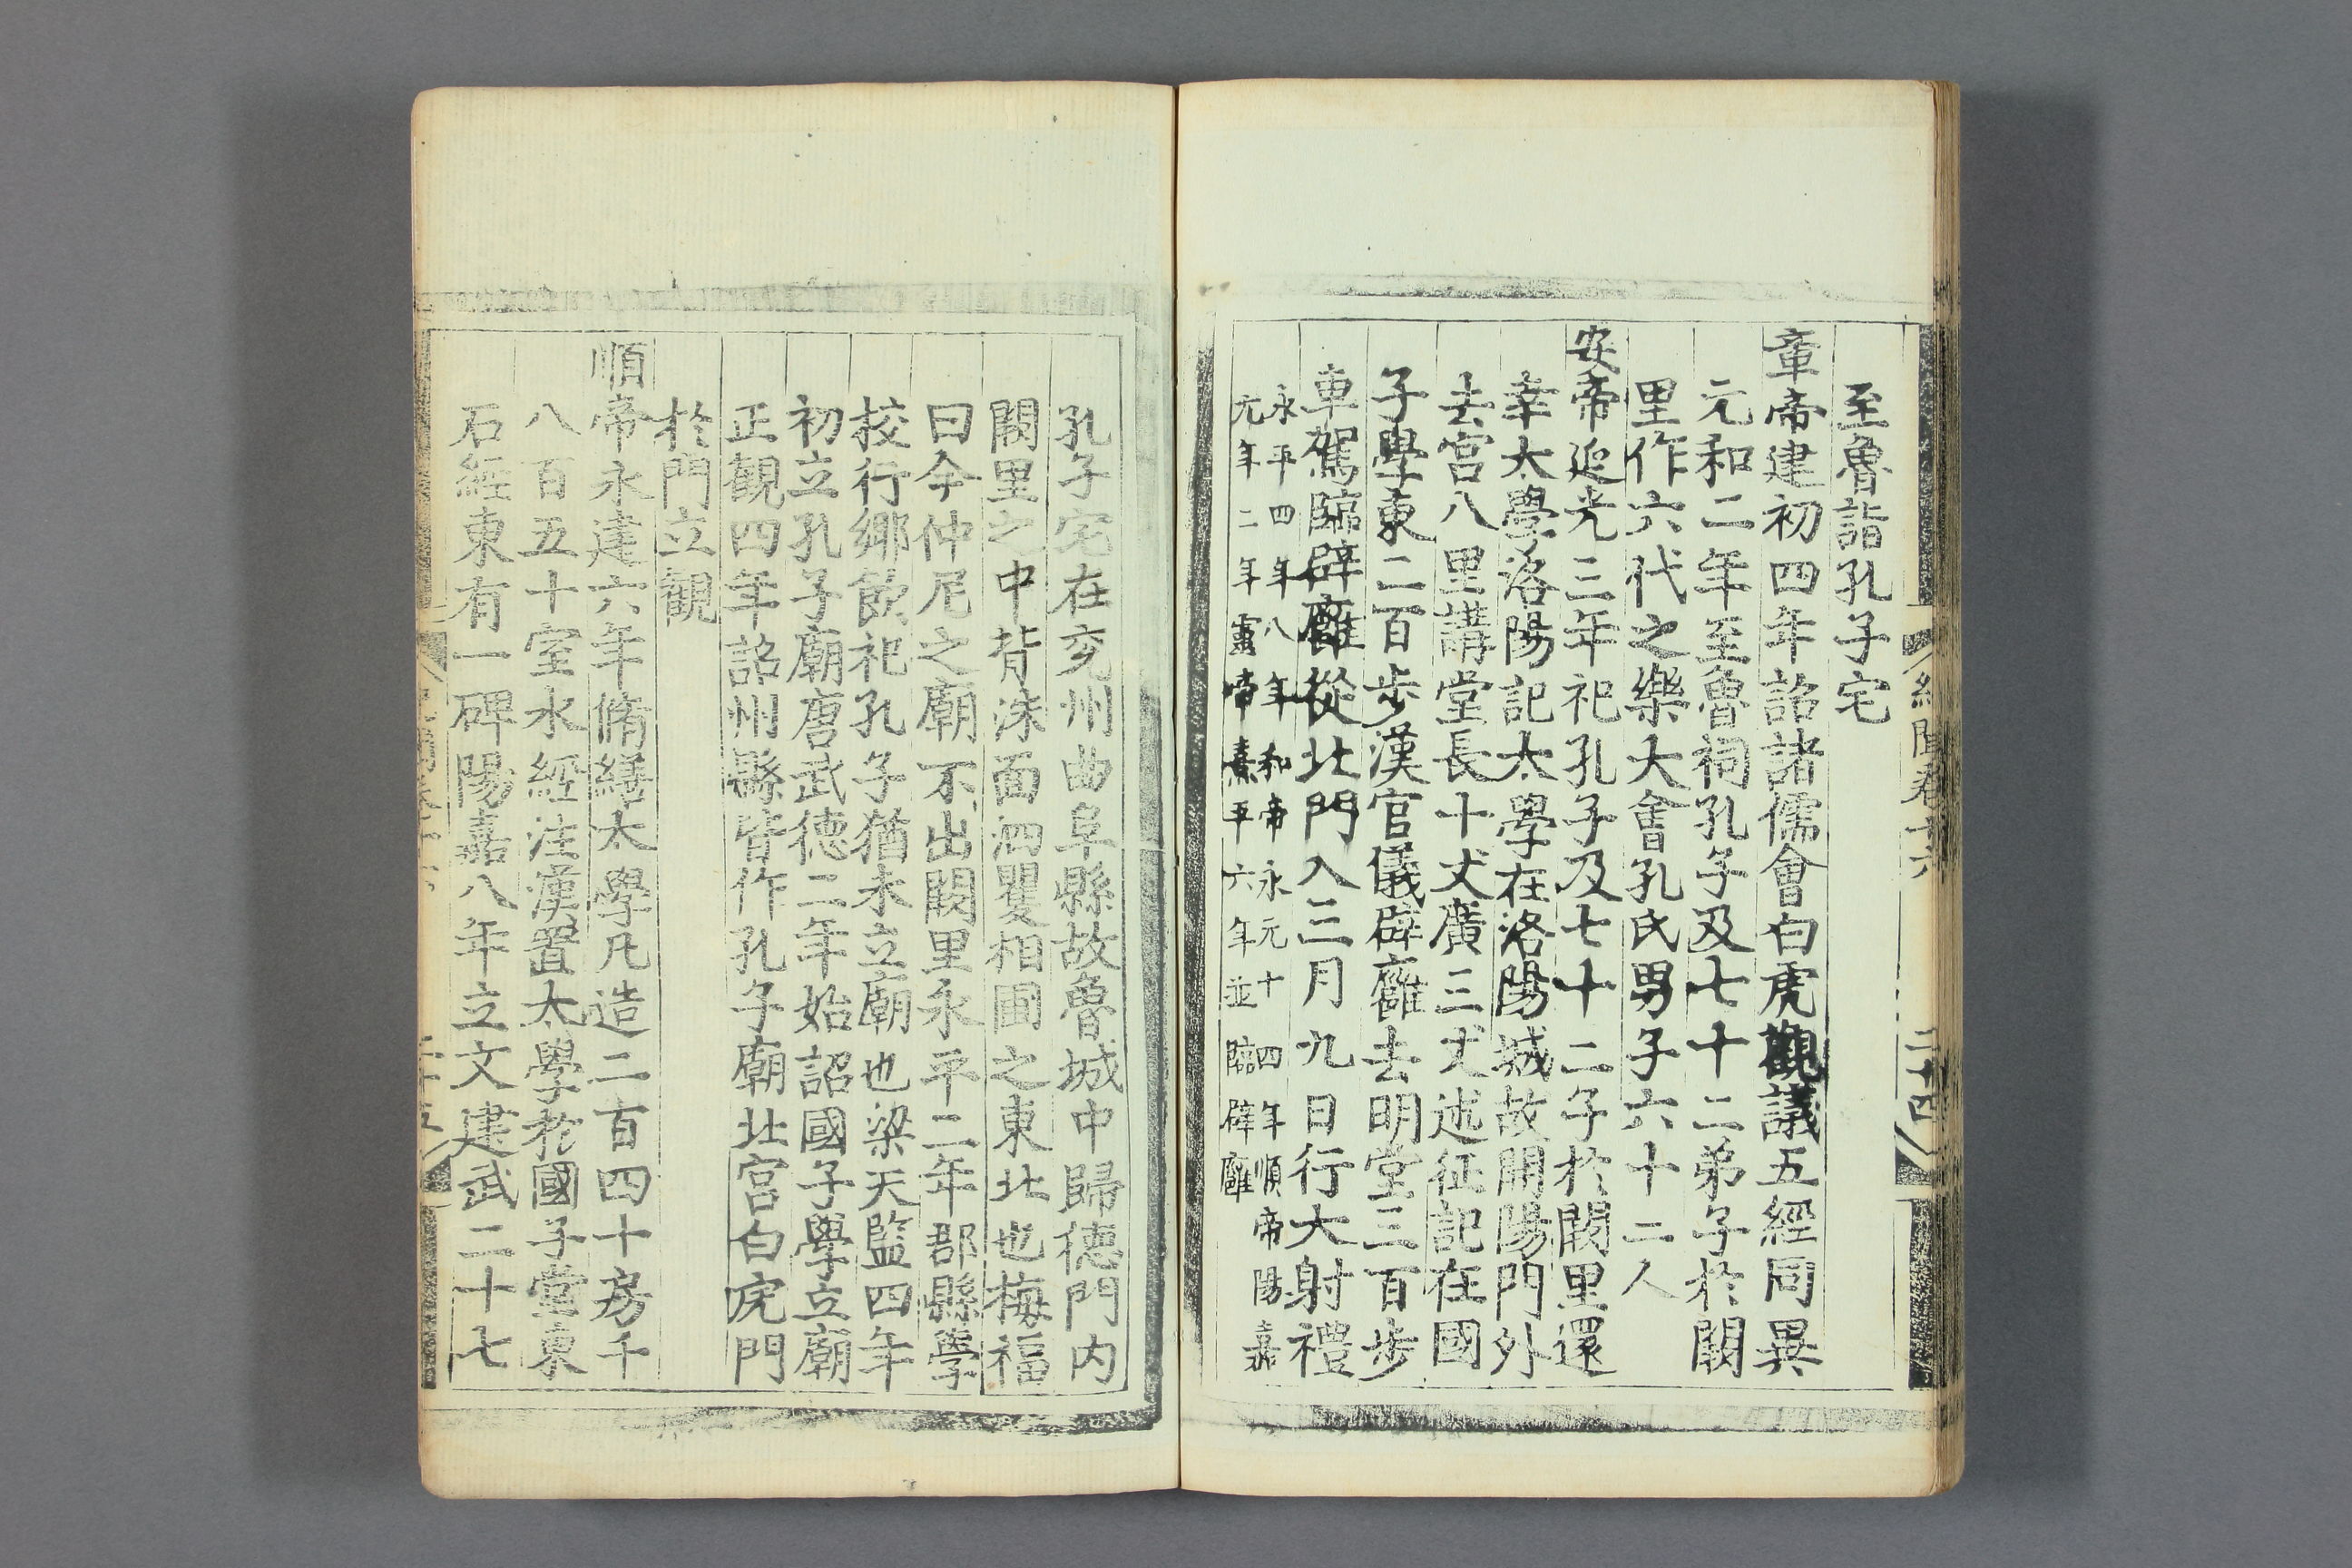 至魯詣孔子宅
章帝建初四年詔諸儒會白虎觀議五經同異
元和二年至魯祠孔子及七十二弟子於闕
里作六代之樂大會孔氏男子六十二人
安帝延光三年祀孔子及七十二子於闕里還
幸太學洛陽記太學在洛陽城故開陽門外
去宮八里講堂長十丈廣三丈述征記在國
子學東二百步漢官儀辟廱去明堂三百步
車駕臨辟廱從北門入三月九日行大射禮
永平四年八年和帝永元十四年順帝陽嘉
元年二年靈帝熹平六年並臨辟廱
孔子宅在兖州曲阜縣故魯城中歸德門内
闕里之中背洙面泗矍相圃之東北也梅福
曰今仲尼之廟不出闕里永平二年郡縣學
校行鄉飲祀孔子猶未立廟也梁天監四年
初立孔子廟唐武德二年始詔國子學立廟
正觀四年詔州縣皆作孔子廟北宮白虎門
於門立觀
順帝永建六年脩繕太學凡造二百四十房千
八百五十室水經注漢置太學於國子堂東
石經東有一碑陽嘉八年立文建武二十七
卷十六
二十四